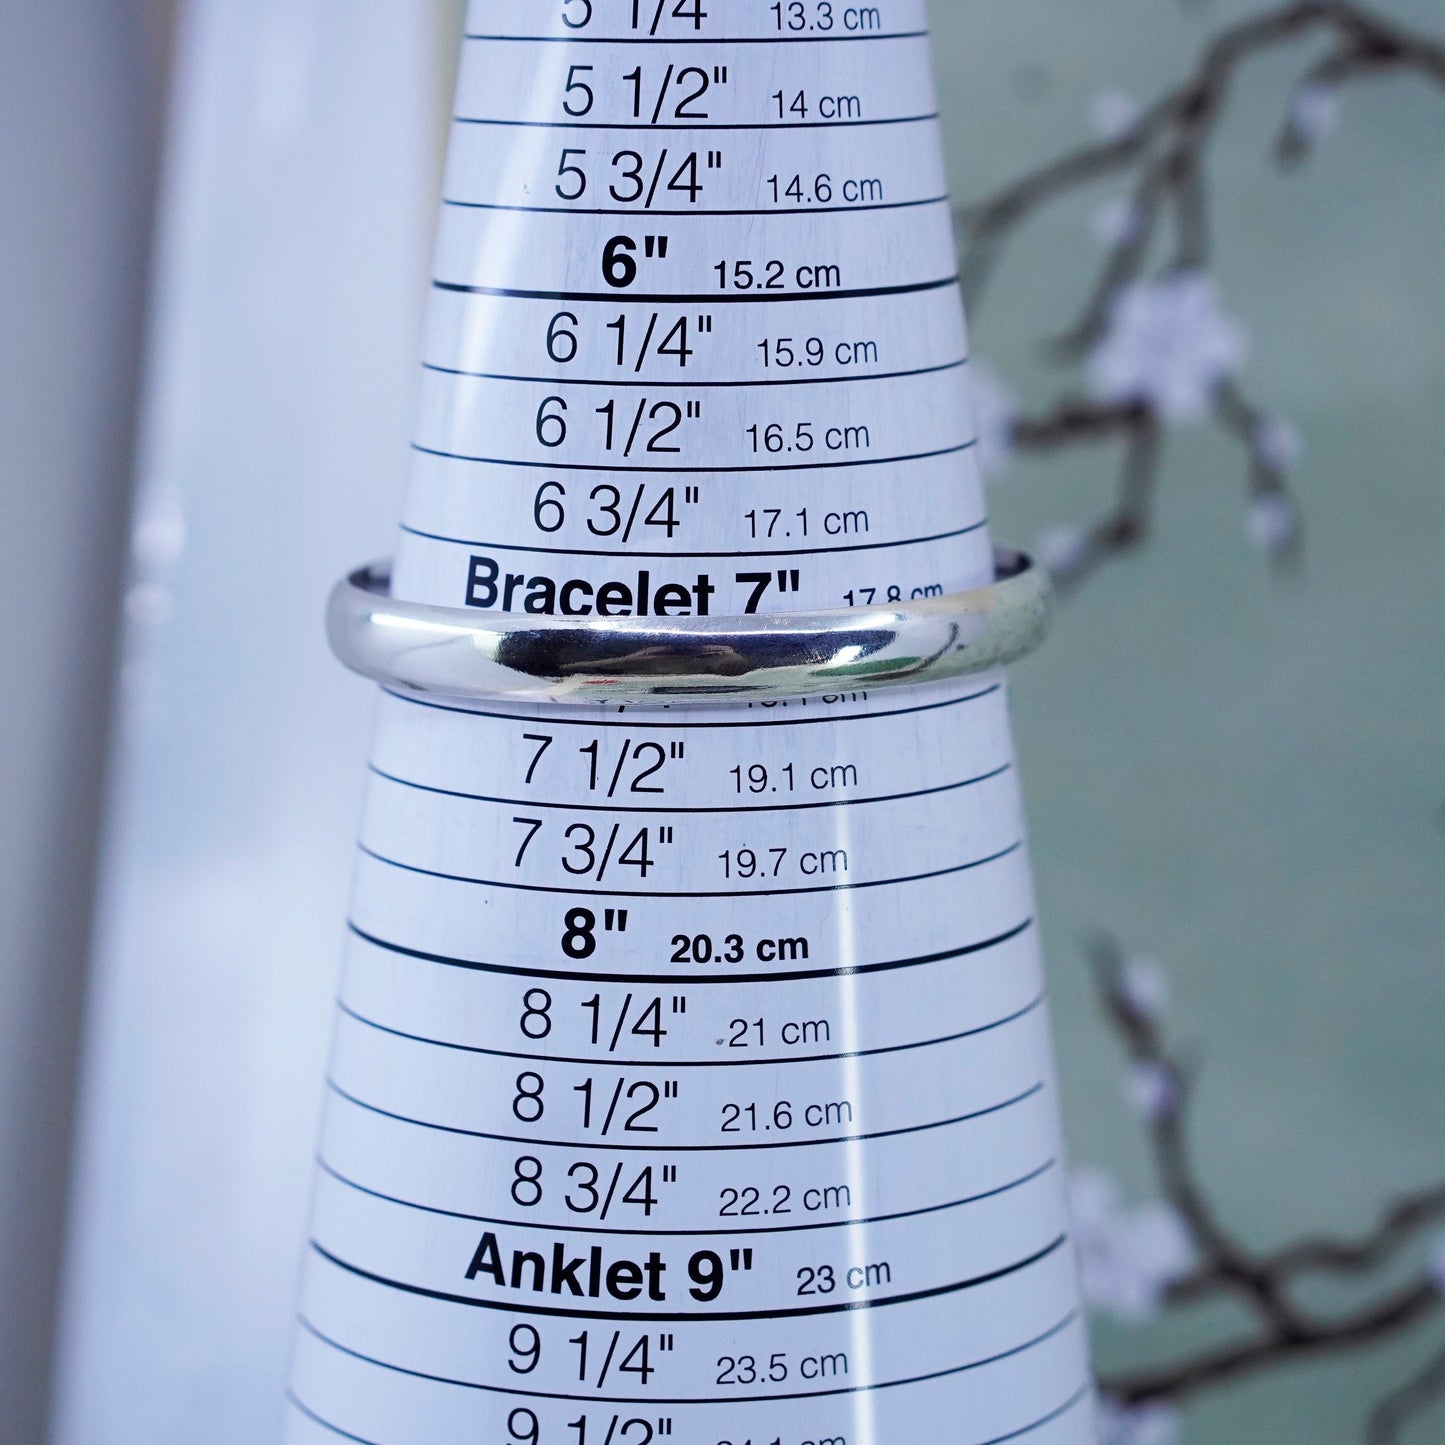 5 1/4 13.3 cm
5 1/2" 14 cm
5 3/4" 14.6 cm
6" 15.2 cm
6 1/4" 15.9 cm
6 1/2" 16.5 cm
6 3/4" 17.1 cm
Bracelet 7" 17.8 cm
7 1/2" 19.1 cm
7 3/4" 19.7 cm
8" 20.3 cm
8 1/4" 21 cm
8 1/2" 21.6 cm
8 3/4" 22.2 cm
Anklet 9" 23 cm
9 1/4" 23.5 cm
9 1/2"